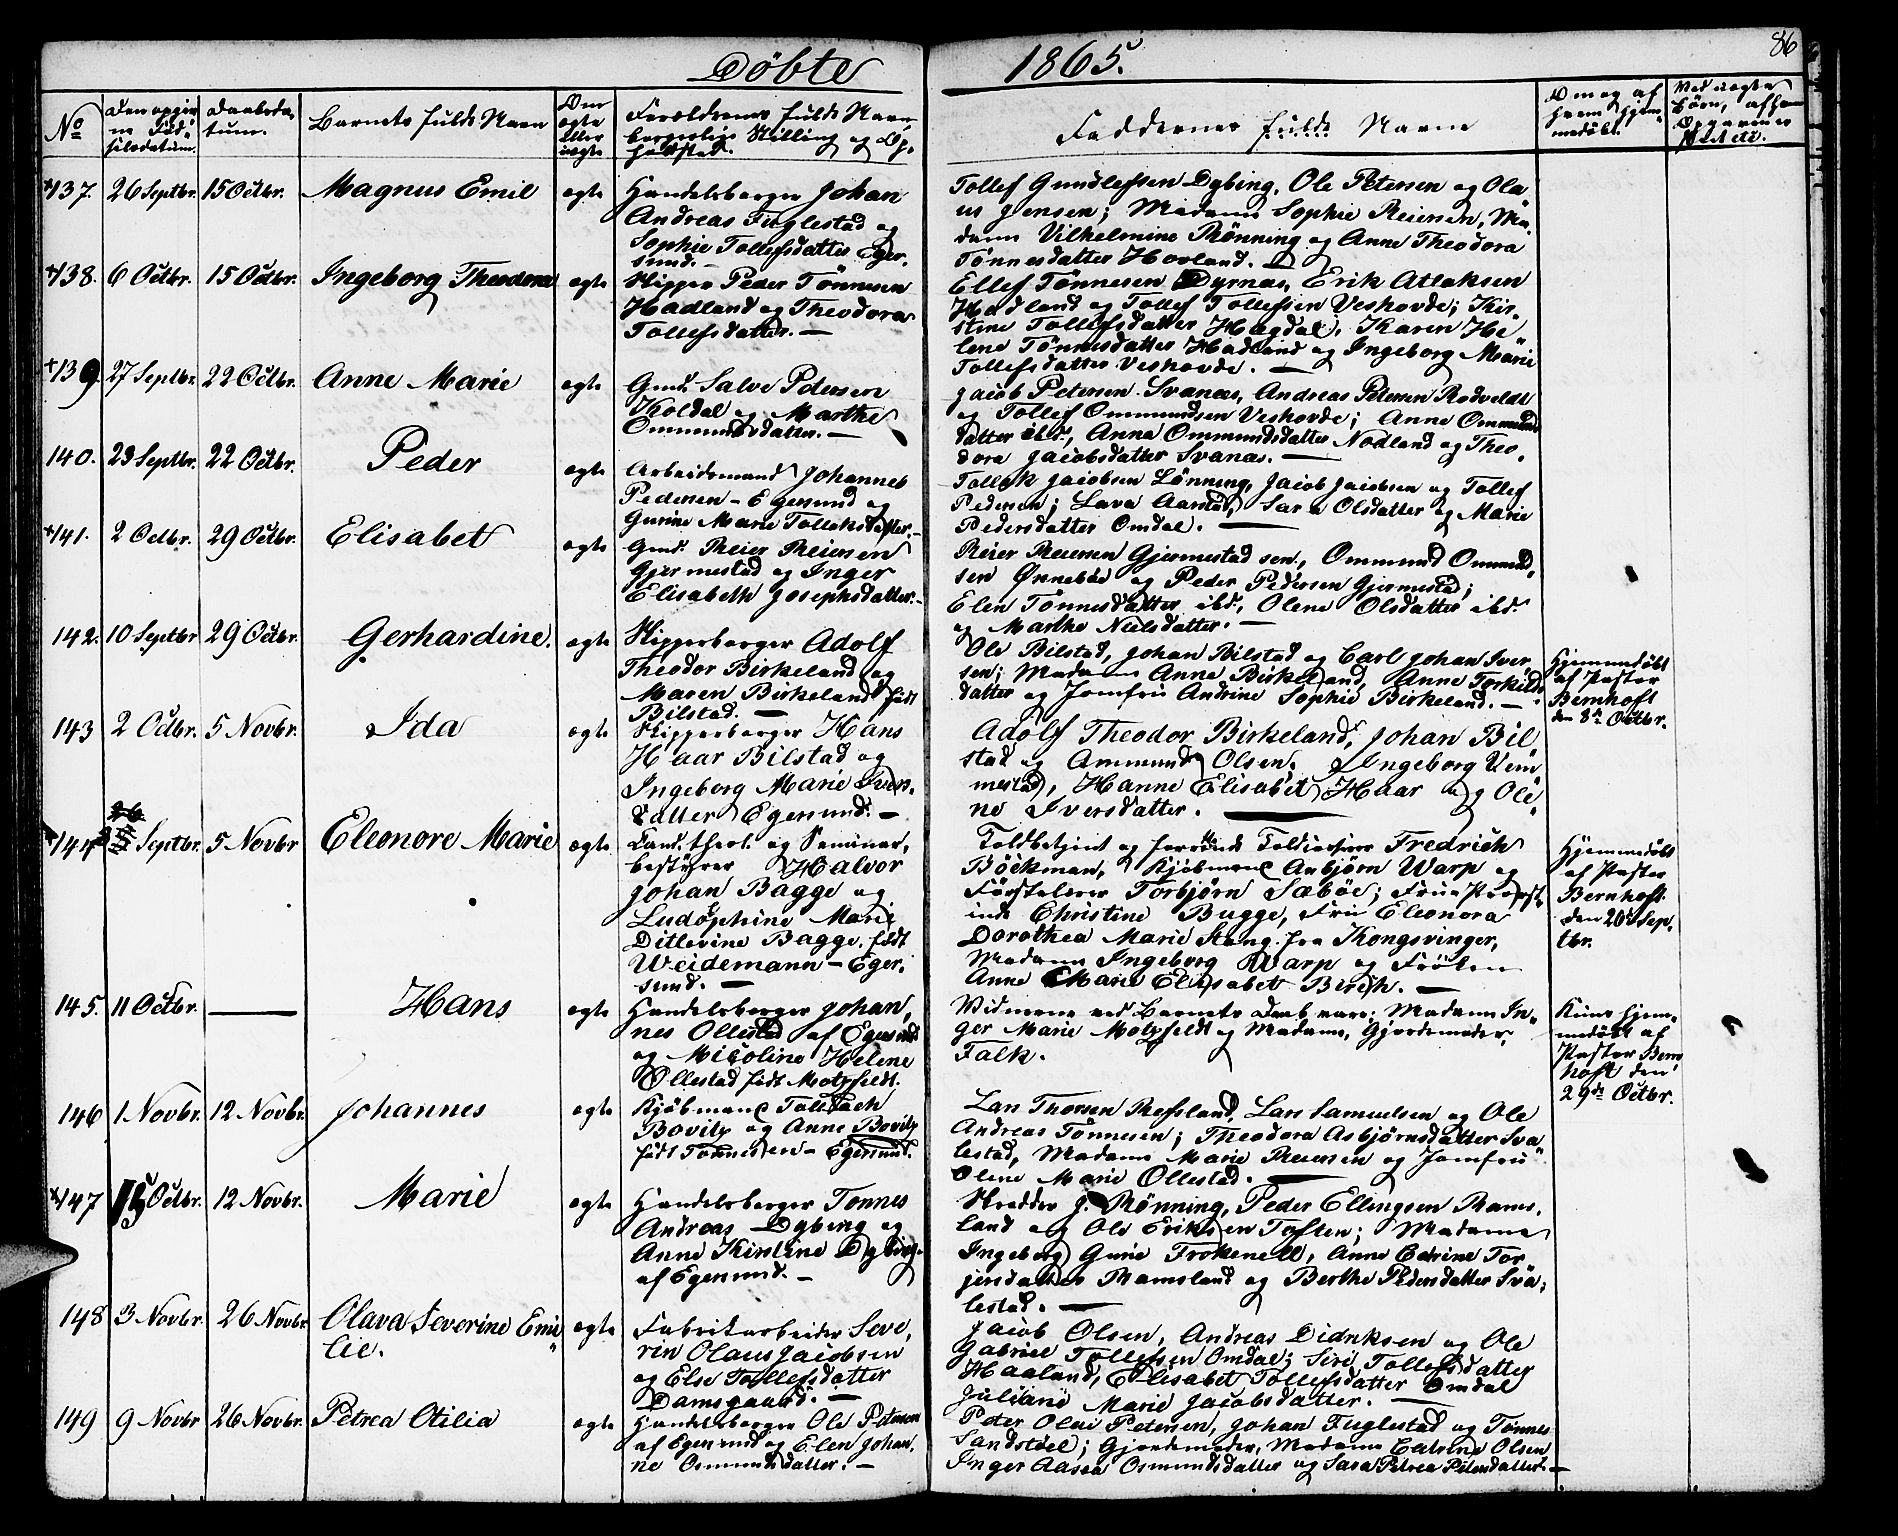 Døbte 1865. 86
No
Den opgivne Fødselsdatum.
Daabsdatum.
Barnets fulde Navn
Om ægte eller uægte
Forældrenes fulde Navn, borgerlige Stilling og Opholdssted.
Faddernes fulde Navne
Om og af hvem hjemmedøbt.
137. 26 Septbr. 15 Octbr. Magnus Emil ægte
Handelsborger Johan
Andreas Fuglestad og
Sophie Tollefsdatter Eger,
sund. —
Tollef Gundlefsen Dybing, Ole Petersen og Ola
us Jensen; Madame Sophie Reiersen, Ma,
dame Vilhelmine Rönning og Anne Theodora
Tönnesdatter Hovland. —
138. 6 Octbr. 15 Octbr. Ingeborg Theodora ægte
Skipper Peder Tönnesen
Hadland og Theodora
Tollefsdatter. —
Ellef Tönnesen Dyrnæs, Erik Atlaksen
Hadland og Tollef Tollefsen Veshovde; Kir,
stine Tollefsdatter Hægdal, Karen He
lene Tönnesdatter Hadland og Ingeborg Marie
Tollefsdatter Veshovde. —
139. 27 Septbr. 22 Octbr. Anne Marie ægte
Gmd. Salve Petersen
Koldal og Marthe
Ommundsdatter. —
Jacob Petersen Svanæs, Andreas Petersen Rodveldt
og Tollef Ommundsen Veshovde; Anne Ommund
datter ibd., Anna Ommundsdatter Nodland og Theo,
dora Jacobsdatter Svanæs. —
140. 23 Septbr. 22 Octbr. Peder ægte
Arbeidsmand Johannes
Pedersen – Egersund og
Gurine Marie Tollaksdatter. –
Tollak Jacobsen Lönning, Jacob Jacobsen og Tollef
Pedersen; Lava Aarstad, Sara Olsdatter og Marie
Pedersdatter Omdal. —
141. 2 Octbr. 29 Octbr. Elisabet ægte
Gmd. Reier Reiersen
Gjermestad og Inger
Elisabeth Josephsdatter. –
Reier Reiersen Gjermestad sen., Ommund Ommund,
sen Ønneböe og Peder Pedersen Gjermestad;
Elen Tönnesdatter ibd., Olene Olsdatter ibd.
og Marthe Nielsdatter. —
142. 10 Septbr 29 Octbr. Gerhardine. ægte
Skipperborger Adolf
Theodor Birkeland og
Maren Birkeland født
Bilstad. —
Ole Bilstad, Johan Bilstad og Carl Johan Iver
sen; Madame Anne Birkeland, Anne Torkilds
datter og Jomfru Andrine Sophie Birkeland. —
Hjemmedøbt
af Pastor
Bernhoft
den 8de Octbr.
143 2 Octbr. 5 Novbr. Ida ægte
Skipperborger Hans
Haar Bilstad og
Ingeborg Marie Ivers,
datter Egersund. —
Adolf Theodor Birkeland, Johan Bil
stad og Ammund Olsen; Ingeborg Vem
mestad, Hanne Elisabet Haar og Oli
ne Iversdatter. —
144 Septbr. 5 Novbr Eleonore Marie ægte
Cand. theol. og Seminar,
bestyrer Halvor
Johan Bagge og
Ludophine Marie
Ditlevine Bagge, født
Weidemann – Eger,
sund. —
Toldbetjent og Toldcasserer Fredrich
Böckman, Kjöbmand Anbjörn Warp og
Förstelærer Torbjörn Sæböe; Frue Provst
inde Christine Bugge, Fru Eleonora
Dorothea Marie Stang fra Kongsvinger,
Madame Ingeborg Warp og Fröken
Anne Marie Elisabet Birch. —
Hjemmedøbt
af Pastor
Bernhoft
den 20de Sep,
tbr.
145. 11 Octbr. — Hans ægte
Handelsborger Johan,
nes Ollestad af Egersund
og Micoline Helene
Ollestad født Motzfeldt.
Vidnerne ved Barnets Daab vare: Madame In,
ger Marie Motzfeldt og Madame, Gjordemoder,
Falk.
Kuns hjem,
medøbt af
Pastor Bern
hoft den
29de Octbr.
146 1 Novbr. 12 Novbr. Johannes ægte
Kjöbmand Tollsach
Bovitz og Anne Bovitz
født Tonnesen – Egersund.
Lars Thorsen Refsland, Lars Samuelsen og Ole
Andreas Tönnesen; Theodora Asbjörnsdatter Sva
lestad, Madame Marie Reiersen og Jomfru
Oline Marie Ollestad. —
147 15 Octbr. 12 Novbr. Marie ægte
Handelsborger Tonnes
Andreas Dybing og
Anne Kirstine Dybing
af Egersund. —
Skredder J. Rönning, Peder Ellingsen Rams,
land og Ole Eriksen Toften; Madame
Ingeborg Gurie Frøkenell, Anne Catrine Tor
jersdatter Ramsland og Berthe Pedersdatter Sva,
lestad. —
148 3 Novbr. 26 Novbr. Olava Severine Emi
lie. ægte
Fabrikarbeider Seve,
rin Olaus Jacobsen
og Else Tollefsdatter
Damsgaard. —
Jacob Olsen, Andreas Didriksen og Ole
Gabriel Tollefsen Omdal; Siri Tollefsdatter
Haaland, Elisabet Tollefsdatter Omdal
Juliane Marie Jacobsdatter. —
149 9 Novbr 26 Novbr. Petrea Otilia ægte
Handelsborger Ole Petersen
af Egersund og Elen Johan,
ne Osmundsdatter. —
Peter Olai Petersen, Johan Fuglestad og Tönnes
Sandstöel; Gjordemoder, Madame Catrine Olsen
Inger Aasea Osmundsdatter og Sara Petrea Petersdatter. —